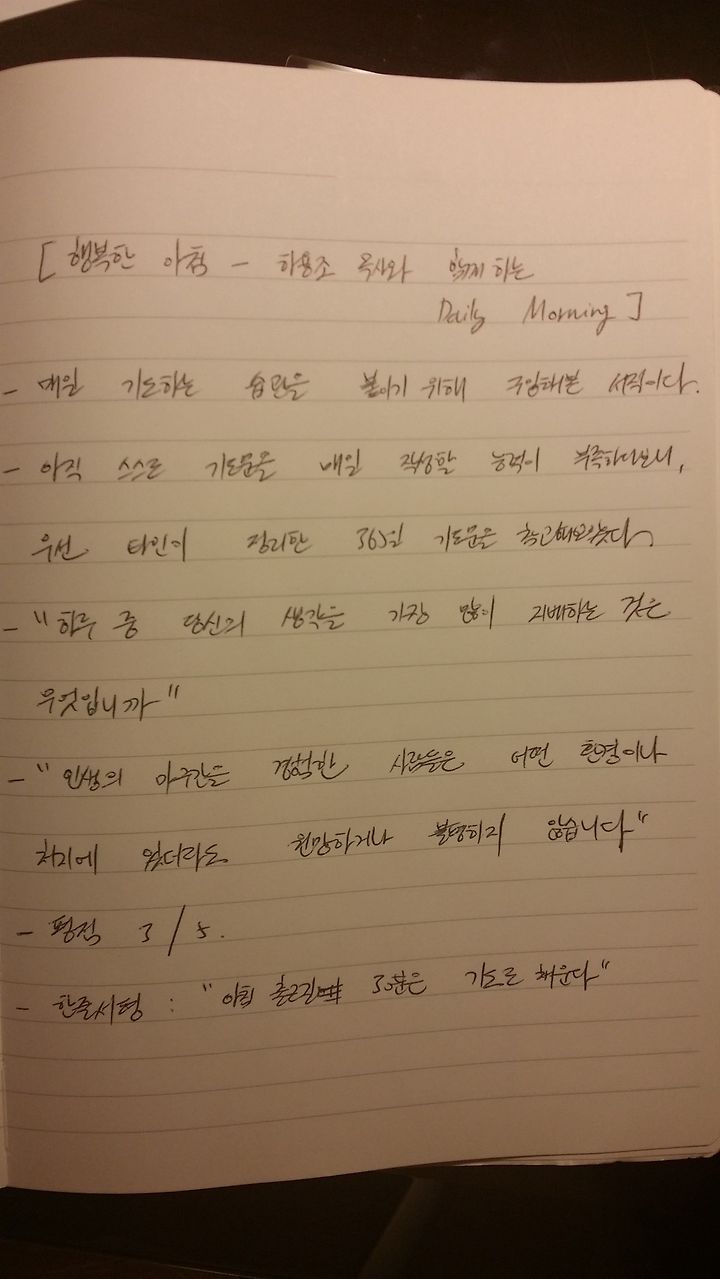 [ 행복한 아침 - 하용조 목사와 함께 하는
Daily Morning ]
- 매일 기도하는 습관을 붙이기 위해 구입해본 서적이다.
- 아직 스스로 기도문을 매일 작성할 능력이 부족하다보니,
우선 타인이 정리한 365일 기도문을 참고해보았다.
- "하루 중 당신의 생각을 가장 많이 지배하는 것은
무엇입니까"
- "인생의 야구간을 경험한 사람들은 어떤 환경이나
처지에 있더라도 원망하거나 불평하지 않습니다"
- 평점 3 / 5.
- 한줄서평 : "아침 출근길 30분은 기도로 채운다"